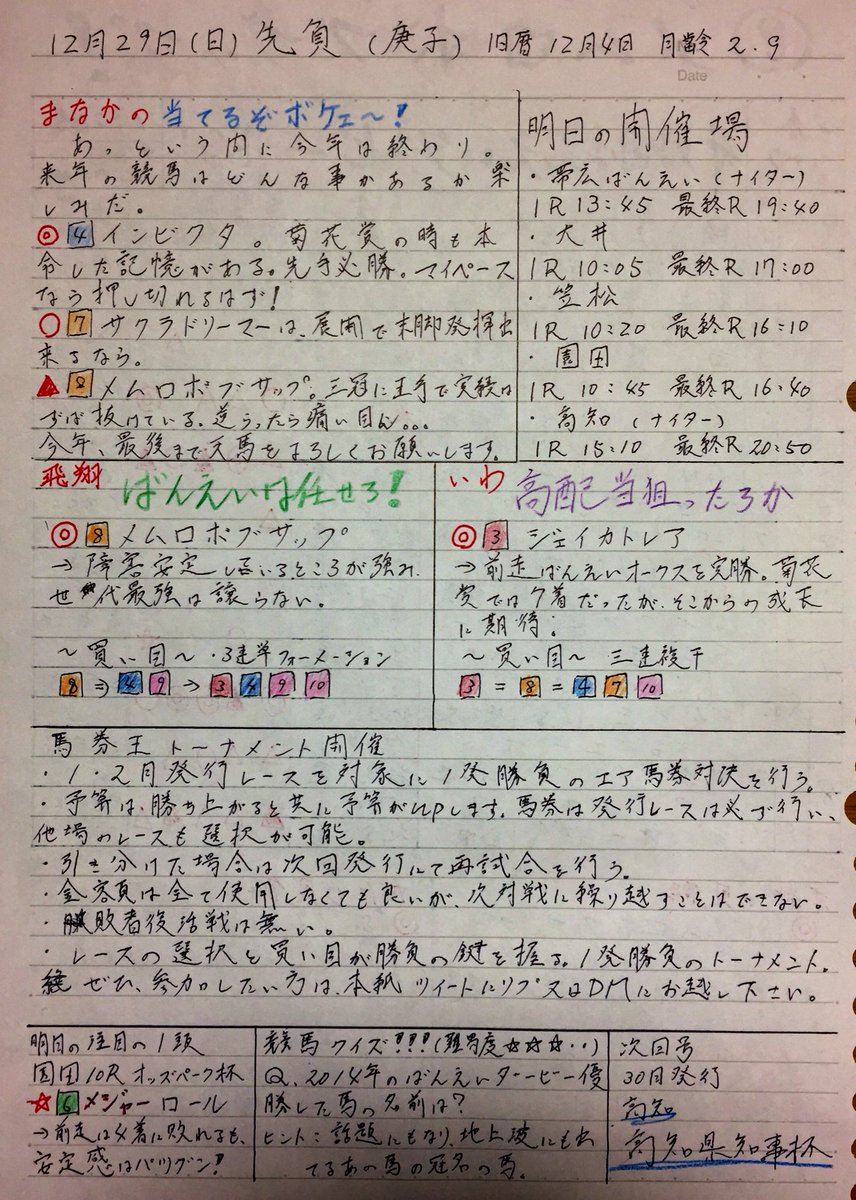 12月29日(日) 先負 (庚子) 旧暦12月4日 月齢2.9
Date
まなかの 当てるぞボケェ〜!
あっという間に今年は終わり。
来年の競馬はどんな事があるか楽
しみだ。
◎ 4 インビクタ。菊花賞の時も本
命した記憶がある。先手必勝。マイペース
なら押し切れるはず!
○ 7 サクラドリーマーは、展開で末脚発揮出
来るなら。
▲ 8 メムロボブサップ。三冠に王手で実績は
ずば抜けている。逆らったら痛い目ん...
今年、最後まで天馬をよろしくお願いします。
明日の開催場
・帯広ばんえい(ナイター)
1R 13:45 最終R 19:40
・大井
1R 10:05 最終R 17:00
・笠松
1R 10:20 最終R 16:10
・園田
1R 10:45 最終R 16:40
・高知 (ナイター)
1R 15:10 最終R 20:50
飛翔 ばんえいは任せろ!
◎ 8 メムロボブサップ
→障害安定しているところが強み、
世代最強は譲らない。
〜買い目〜 ・3連単フォーメーション
8 ⇒ 4 9 → 3 4 9 10
いわ 高配当狙ったろか
◎ 3 ジェイカトレア
→前走ばんえいオークスを完勝。菊花
賞では7着だったが、そこからの成長
に期待。
〜買い目〜 三連複干
3 = 8 = 4 7 10
馬券王トーナメント開催
・1・2月発行レースを対象に1発勝負のエア馬券対決を行う。
・予算は、勝ち上がると共に予算がUPします。馬券は発行レースは必ず行い、
他場のレースも選択が可能。
・引き分けた場合は次回発行にて再試合を行う。
・金額は全て使用しなくても良いが、次対戦に繰り越すことはできない。
・敗者復活戦は無い。
・レースの選択と買い目が勝負の鍵を握る。1発勝負のトーナメント。
ぜひ、参加したい方は、本紙ツイートにリプ又はDMにお越し下さい。
明日の注目の1頭
園田10R オッズパーク杯
☆ 6 メジャーロール
→前走は4着に敗れるも、
安定感はバツグン!
競馬クイズ!!!(難易度☆☆☆・・)
Q、2014年のばんえいダービー優
勝した馬の名前は?
ヒント:話題にもなり、地上波にも出
てるあの馬の冠名の馬。
次回号
30日発行
高知
高知県知事杯